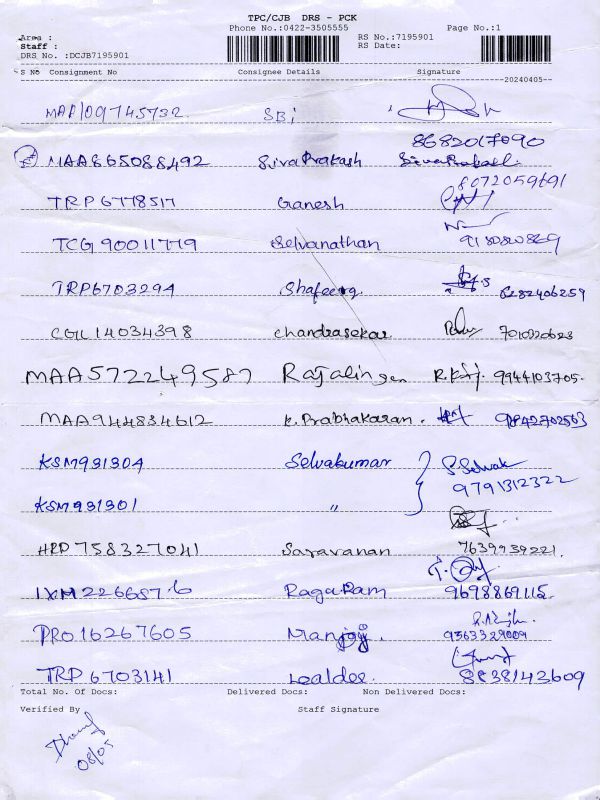 TPC/CJB DRS - PCK
Phone No.:0422-3505555 Page No.:1
Area : RS No.:7195901
Staff : RS Date:
DRS No. :DCJB7195901
S No Consignment No Consignee Details Signature
20240405
MAA109745732 SBi
8682017090
MAA865088492 SivaPrakash SivaPrakash
8072059691
TRP6778517 Ganesh
TCG90011779 Selvanathan 9180820869
TRP6703294 Shafeeq 8282406259
CGL14034398 Chandrasekar 7010220623
MAA572249587 Rajalingen 9944103705.
MAA944834612 K. Prabhakaran. 9842702563
KSM931304 Selvakumar S.Selvak
9791312322
KSM931301 "
HRD758327041 Saravanan 7639939221.
IXM226687.6 RagaRam 9698869115.
PRO16267605 Manjoj 9563329009
TRP6703141 Lealdee 8838143609
Total No. Of Docs: Delivered Docs: Non Delivered Docs:
Verified By Staff Signature
08/05